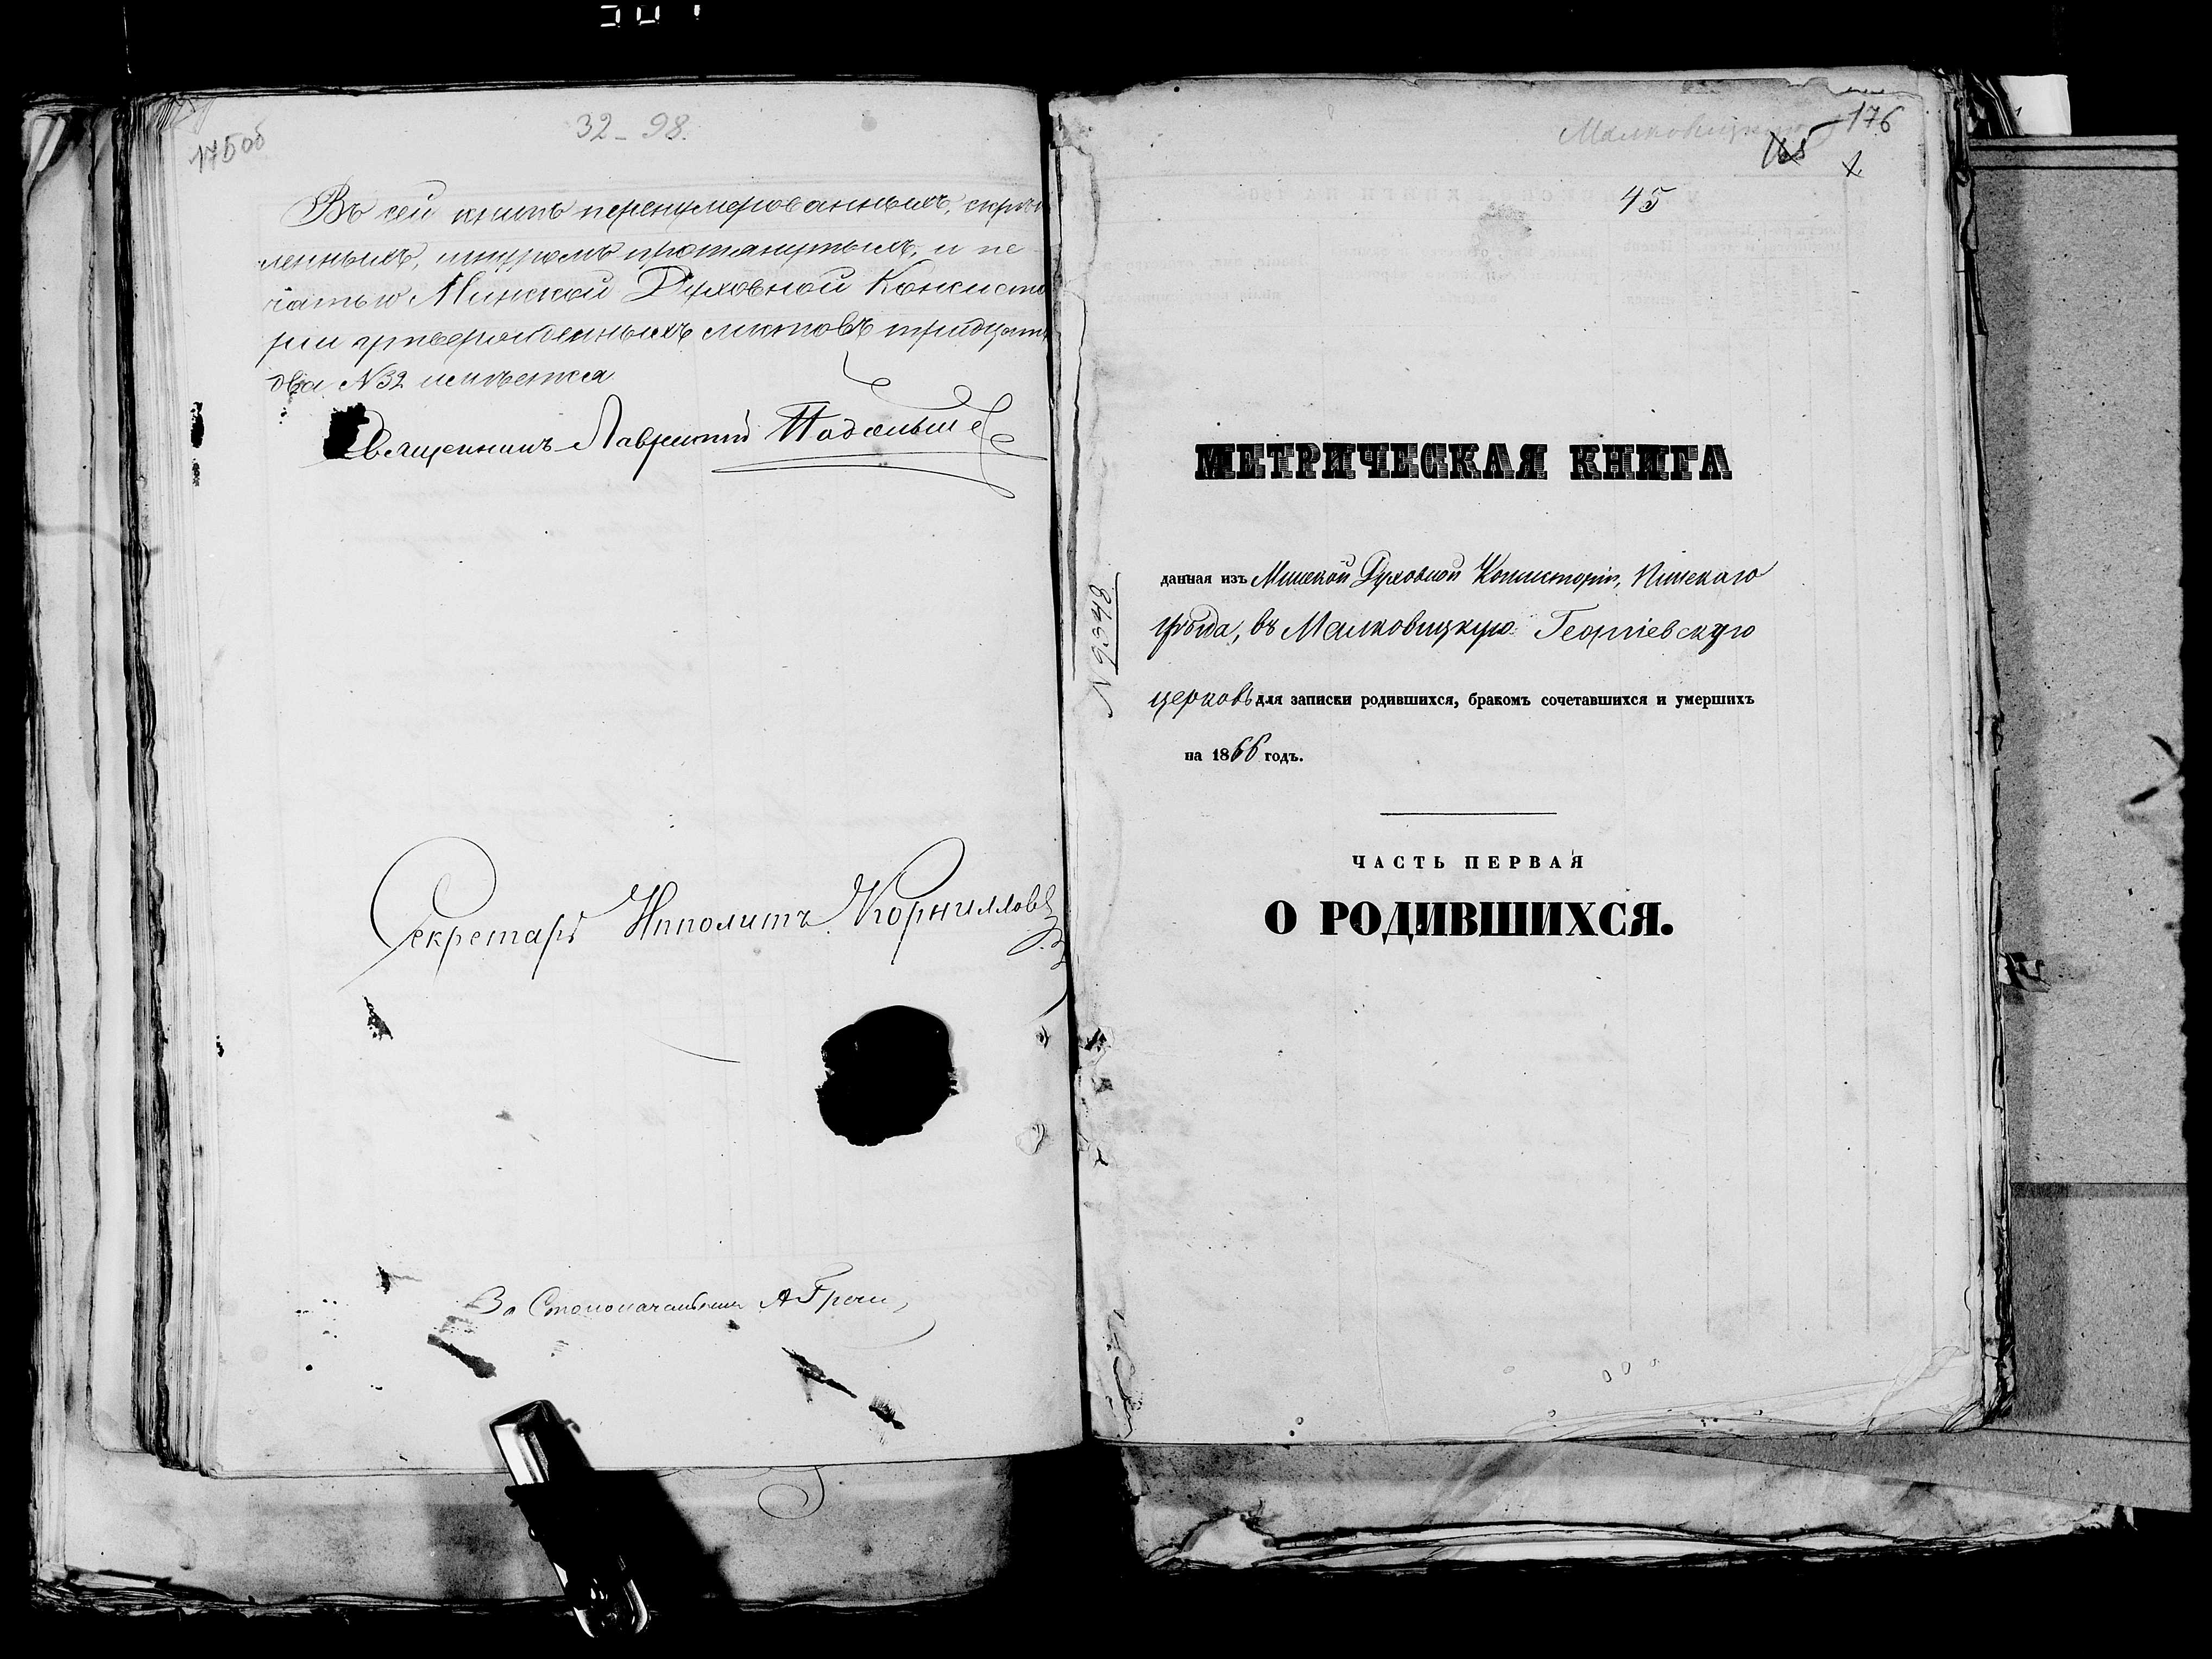 175 об
32 - 98.
Въ сей книгѣ перенумерованныхъ, скрѣп
ленныхъ, шнуромъ протянутыхъ, и пе
чатью Минской Духовной Консисто
ріи утвержденныхъ листовъ тридцать
два №32 имѣется
Священникъ Лаврентій
Секретарь Ипполитъ Корниловъ
За Столоначальника
Малковицкую 176
165 1
45
МЕТРИЧЕСКАЯ КНИГА
№9348
данная изъ Минской Духовной Консисторіи, Пинскаго
уѣзда, въ Малковицкую Георгіевскую
церковь для записки родившихся, бракомъ сочетавшихся и умершихъ
на 1866 годъ.
ЧАСТЬ ПЕРВАЯ
О РОДИВШИХСЯ.